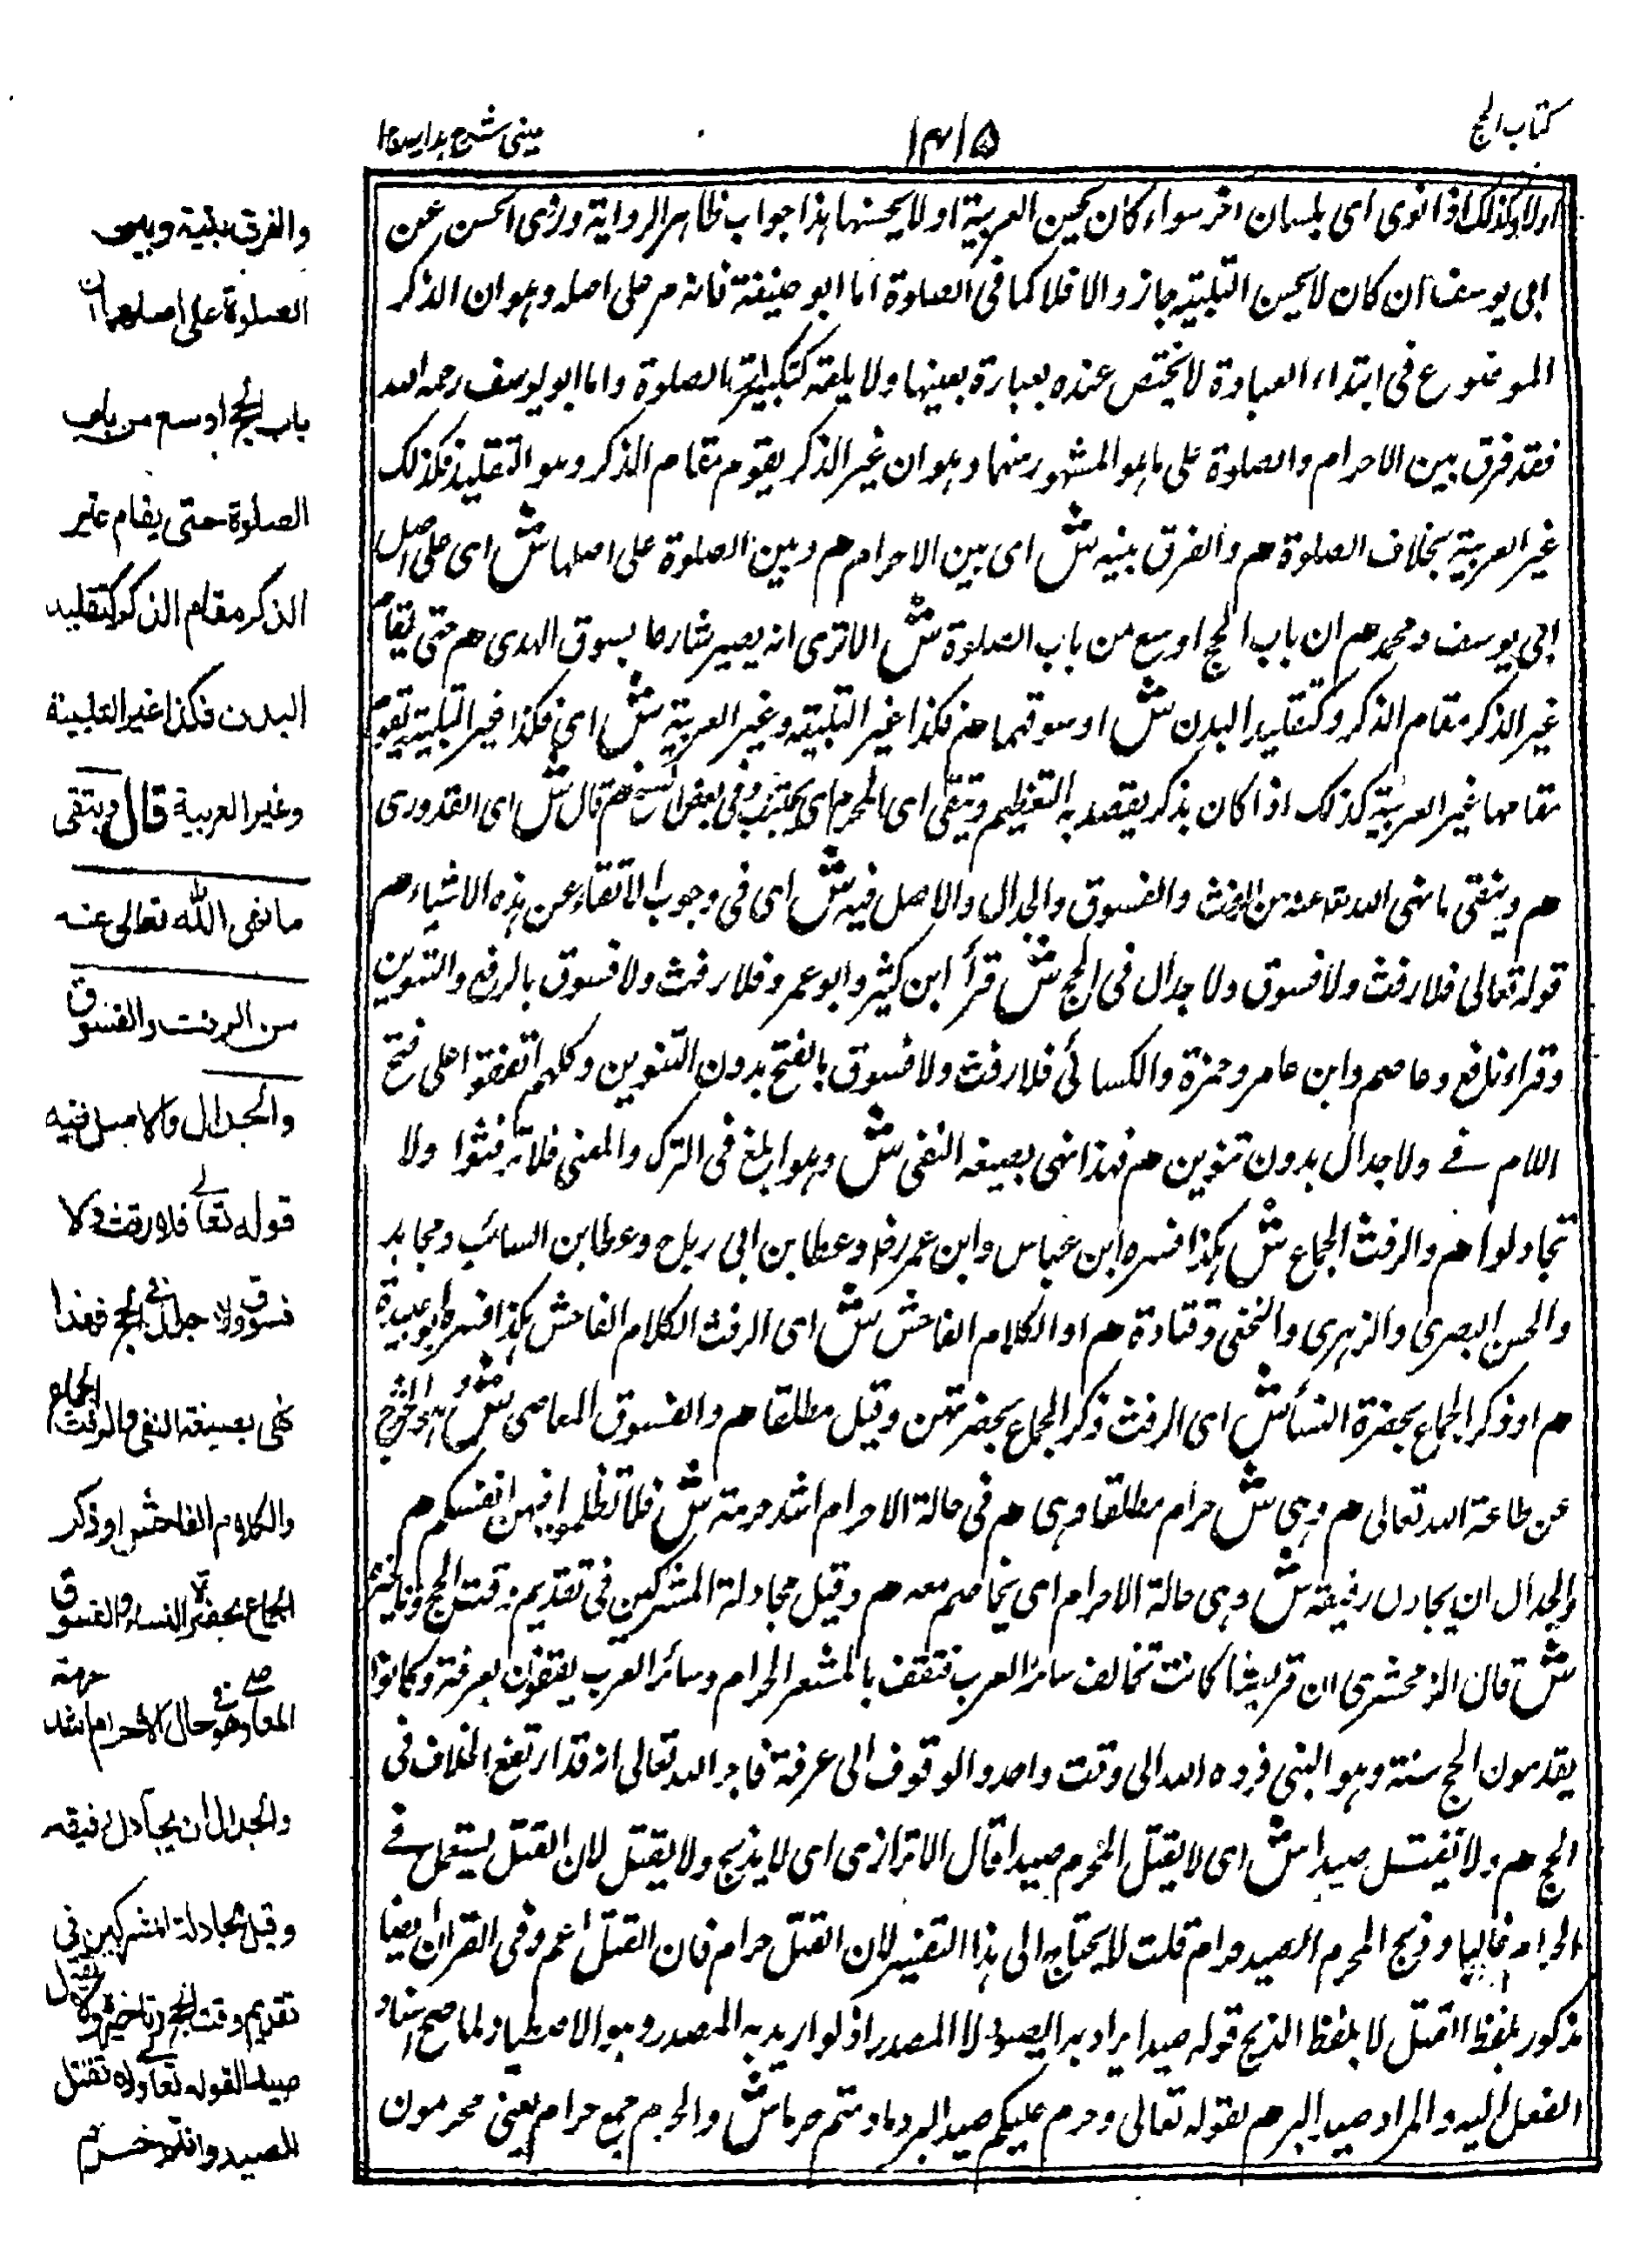 كتاب الحج
١٤١٥
عيني شرح هدايه ج١
اولا وكذلك اذا نوى اى بلسان اخر سواء كان يحسن العربية او لا يحسنها هذا جواب ظاهر الرواية وروى الحسن عن
ابى يوسف ان كان لا يحسن التلبية جاز والا فلا كما فى الصلوة اما ابو حنيفة فانه مر على اصله وهو ان الذكر
الموضوع فى ابتداء العبادة لا يختص عنده بعبارة بعينها ولا بلغة كتكبيرة الصلوة واما ابو يوسف رحمه الله
فقد فرق بين الاحرام والصلوة على ما هو المشهور منهما وهو ان غير الذكر يقوم مقام الذكر وهو التقليد فكذلك
غير العربية بخلاف الصلوة هم والفرق بينه ش اى بين الاحرام هم وبين الصلوة على اصلهما ش اى على اصل
ابى يوسف ومحمد هم ان باب الحج اوسع من باب الصلوة ش الا ترى انه يصير شارعا بسوق الهدى هم حتى يقام
غير الذكر مقام الذكر وكتقليد البدن ش او سوقهما هم فكذا غير التلبية وغير العربية ش اى فكذا غير التلبية يقوم
مقامها غير العربية كذلك اذا كان بذكر يقصد به التعظيم ويتقى اى المحرم اى يجتنب وفى بعض النسخ هم قال ش اى القدورى
هم ويتقى ما نهى الله تعالى عنه من الرفث والفسوق والجدال والاصل فيه ش اى فى وجوب الاتقاء عن هذه الاشياء هم
قوله تعالى فلا رفث ولا فسوق ولا جدال فى الحج ش قرأ ابن كثير وابو عمرو فلا رفث ولا فسوق بالرفع والتنوين
وقراء نافع وعاصم وابن عامر وحمزة والكسائى فلا رفث ولا فسوق بالفتح بدون التنوين وكلهم اتفقوا على فتح
اللام فے ولا جدال بدون تنوين هم فهذا نهى بصيغه النفى ش وهو ابلغ فى الترك والمعنى فلا ترفثوا ولا
تجادلوا هم والرفث الجماع ش هكذا فسره ابن عباس وابن عمر رض وعطا بن ابى رباح وعطا بن السائب ومجاهد
والحسن البصرى والزهرى والنخعى وقتادة هم او الكلام الفاحش ش اى الرفث الكلام الفاحش هكذا فسره ابو عبيدة
هم او ذكر الجماع بحضرة النسأ ش اى الرفث ذكر الجماع بحضرتهن وقيل مطلقا هم والفسوق المعاصى ش وهو الخروج
عن طاعة الله تعالى هم وهى ش حرام مطلقا وهى هم فى حالة الاحرام اشد حرمة ش فلا تظلموا فيهن انفسكم هم
والجدال ان يجادل رفيقه ش وهى حالة الاحرام اى يخاصم معه هم وقيل مجادلة المشركين فى تقديم وقت الحج وتاخيره
ش قال الزمخشرى ان قريشا كانت تخالف سائر العرب فتقف بالمشعر الحرام وسائر العرب يقفون بعرفة وكانوا
يقدمون الحج سنة وهو النسى فرده الله الى وقت واحد والوقوف الى عرفة فاخبر الله تعالى انه قد ارتفع الخلاف فى
الحج هم ولا تقتل صيدا ش اى لا يقتل المحرم صيدا قال الاترازى اى لا يذبح ولا يقتل لان القتل يستعمل فے
الحرام غالبا وذبح المحرم الصيد حرام قلت لا يحتاج الى هذا التفسير لان القتل حرام فان القتل اعم وفى القران ايضا
مذكور بلفظ القتل لا بلفظ الذبح قوله صيدا يراد به المصيود لا المصدر اذ لو اريد به المصدر وهو الاصطياد لما صح اسناد
الفعل اليه والمراد صيد البر هم لقوله تعالى وحرم عليكم صيد البر ما دمتم حرما ش والحرم جمع حرام يعنى محرمون
والفرق بينه وبين
الصلوة على اصلهما ان
باب الحج اوسع من باب
الصلوة حتى يقام غير
الذكر مقام الذكر كتقليد
البدن فكذا غير التلبية
وغير العربية قال ويتقى
ما نهى الله تعالى عنه
من الرفث والفسوق
والجدال والاصل فيه
قوله تعالے فلا رفث ولا
فسوق ولا جدال فے الحج فهذا
نهى بصيغة النفى والرفث الجماع
والكلام الفاحش او ذكر
الجماع بحضرة النساء والفسوق
المعاصے وهو فے حال الاحرام اشد حرمة
والجدال ان يجادل رفيقه
وقيل مجادلة المشركين فى
تقديم وقت الحج وتاخيره ولا يقتل
صيدا لقوله تعالے ولا تقتلوا
الصيد وانتم حرم